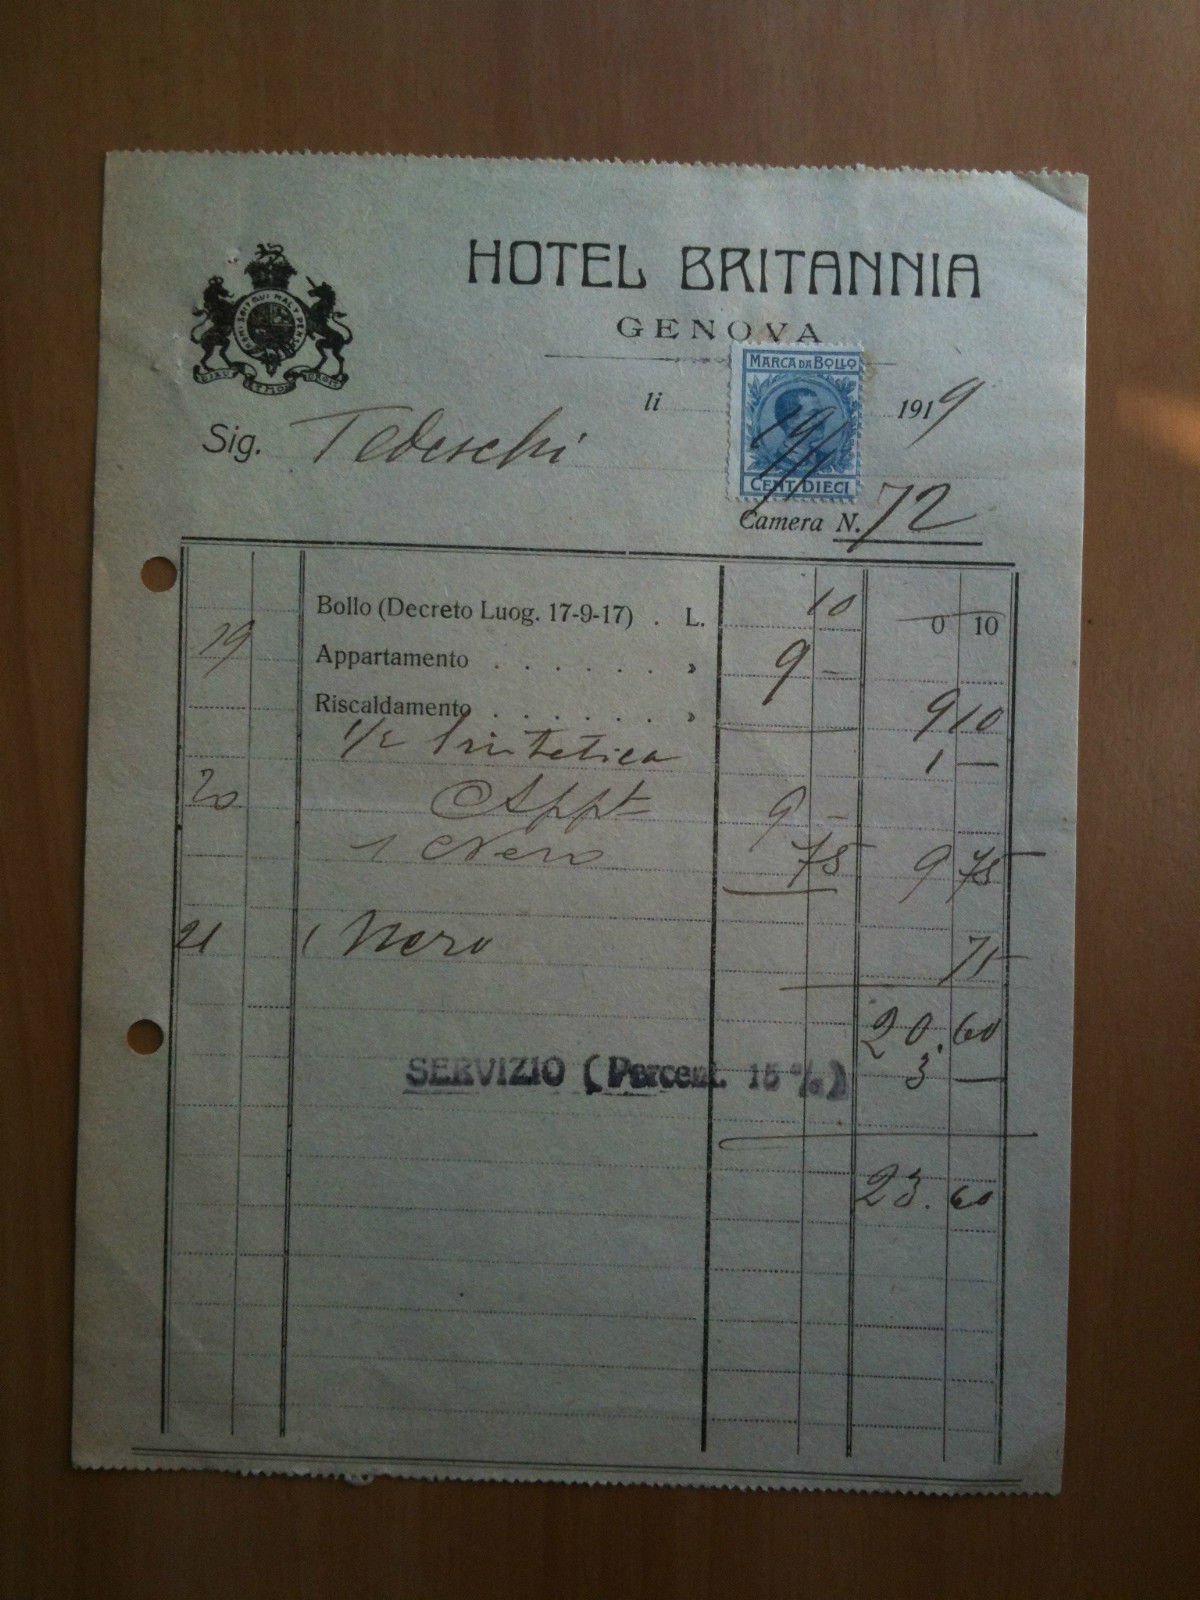 HOTEL BRITANNIA
GENOVA
HONI SOIT QUI MAL Y PENSE
DIEU ET MON DROIT
MARCA DA BOLLO
li 1919
19/
Sig. Tedeschi
CENT. DIECI
Camera N. 72
Bollo (Decreto Luog. 17-9-17) . L. 10 0 10
19 Appartamento . . . . . . » 9 –
Riscaldamento . . . . . . » 9 10
1/2 1 —
20 Appt 9 –
1 Nero 75 9 75
21 1 Nero 75
20.60
SERVIZIO (Percent. 15 %) 3 —
23.60